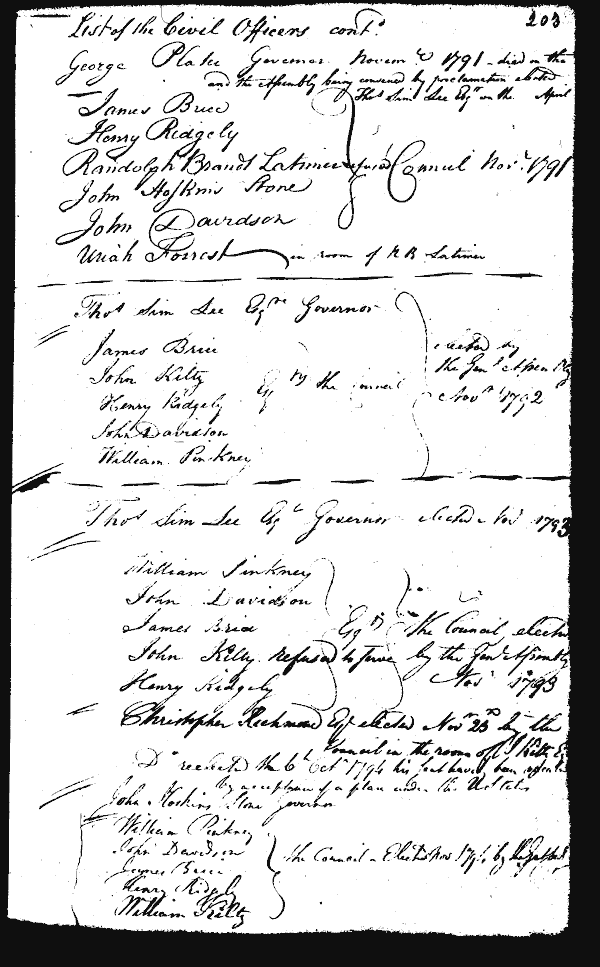 203
List of the Civil Officers cont.d
George Plater Governor Novem.r 1791 - died in the
and the Assembly being convened by proclamation elected
Tho.s Sim Lee Esq.r on the April
James Brice
Henry Ridgely
Randolph Brandt Latimer refused Council Nov.r 1791
John Hoskins Stone
John Davidson
Uriah Forrest in room of R B Latimer
Tho.s Sim Lee Esq.re Governor
James Brice
John Kilty
Henry Ridgely
John Davidson
William Pinkney
Esq.rs the Council
elected by
the Gen.l Assembly
Nov.r 1792
Tho.s Sim Lee Esq.r Governor elected Nov.r 1793
William Pinkney
John Davidson
James Brice
John Kilty refused to serve
Henry Ridgely
Esq.rs the Council elected
by the Gen.l Assembly
Nov.r 1793
Christopher Richmond Esq.r elected Nov.r 23.d by the
Council in the room of J Kilty
D.o reelected the 6.th Oct.r 1794 his seat having been
by acceptance of a place under the
John Hoskins Stone Governor
William Pinkney
John Davidson
James Brice
Henry Ridgely
William Kilty
the Council - Elected Nov.r by the